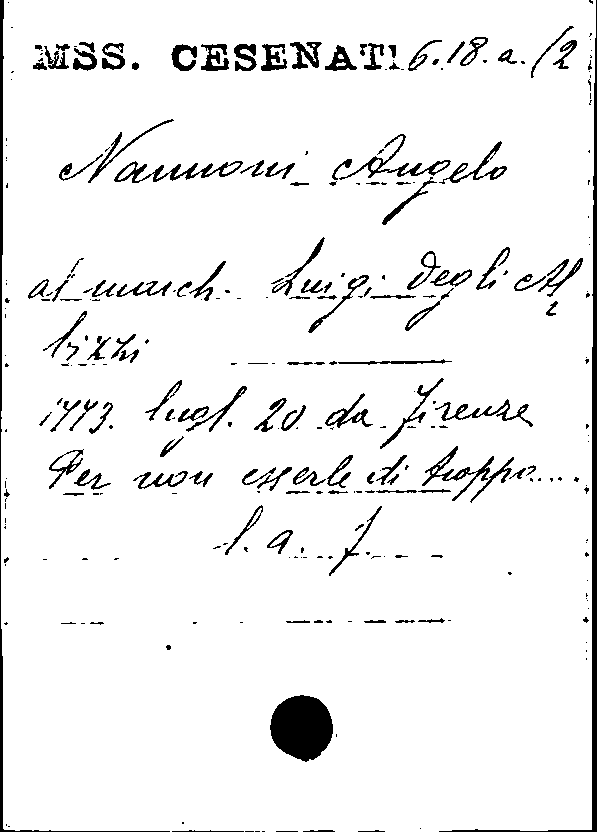 MSS. CESENATI 6.18.a./2
Nannoni Angelo
al march. Luigi degli Al
bizzi
1773. lugl. 20 da Firenze
Per non esserle di troppo....
l. a. f.